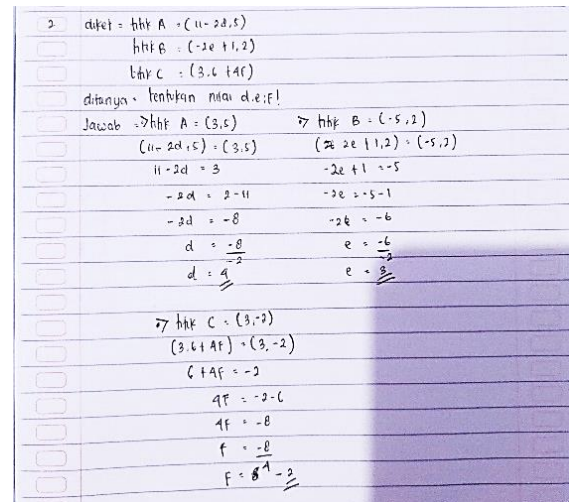 2 diket = titik A = (11-2d,5)
titik B = (-2e+1,2)
titik C = (3.6+4f)
ditanya = Tentukan nilai d.e;f!
Jawab =>titik A = (3,5)
(11-2d,5) = (3.5)
11-2d = 3
-2d = 3-11
-2d = -8
d = -8
-2
d = 4
=> titik B = (-5,2)
(2e+1,2) = (-5,2)
-2e+1 = -5
-2e = -5-1
-2e = -6
e = -6
-2
e = 3
=> titik C = (3,-2)
(3.6+4f) = (3,-2)
6+4f = -2
4f = -2-6
4f = -8
f = -8
4
F = -2